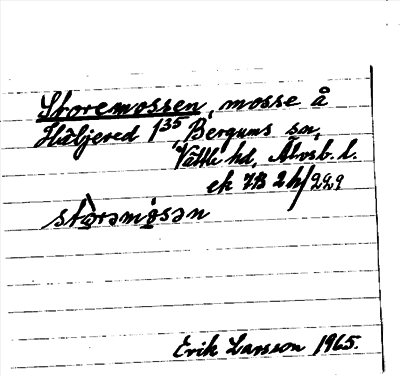 Storemossen, mosse å
Häljered 1³⁵ Bergums sn,
Vättle hd, Älvsb. l.
ek 7B 2h/
stòrəmósən
Erik Larsson 1965.